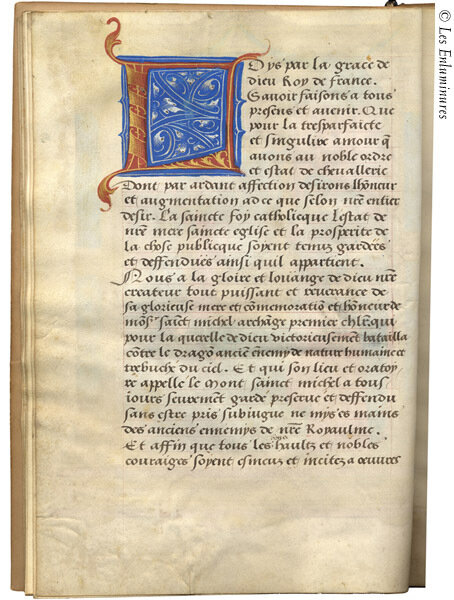 Loys par la grace de
dieu Roy de france.
Savoir faisons a tous
presens et avenir. Que
pour la tresparfaicte
et singuliere amour q̄
auons au noble ordre
et estat de cheuallerie
Dont par ardant affection desirons lhõneur
et augmentation ad ce que selon nr̃e entier
desir. La saincte foy catholicque lestat de
nr̃e mere saincte eglise et la prosperite de
la chose publicque soyent tenuz gardees
et deffendues ainsi quil appartient.
Nous a la gloire et louange de dieu nr̃e
createur tout puissant et reuerance de
sa glorieuse mere et cõmemoratiõ et hõneur de
mõs.r sainct michel archãge premier chl̃r qui
pour la querelle de dieu victorieusement batailla
cõtre le dragõ anciẽ ẽnemy de natur humaine et
trebucha du ciel. Et qui son lieu et oratoy
re appelle le Mont sainct michel a tous
iours seurement garde preserue et deffendu
sans estre pris subiugue ne mys es mains
des anciens ennemys de nr̃e Royaulme.
Et affin que tous les haultz et nobles
couraiges soyent esmeuz et incitez a oeuvres
© Les Enluminures